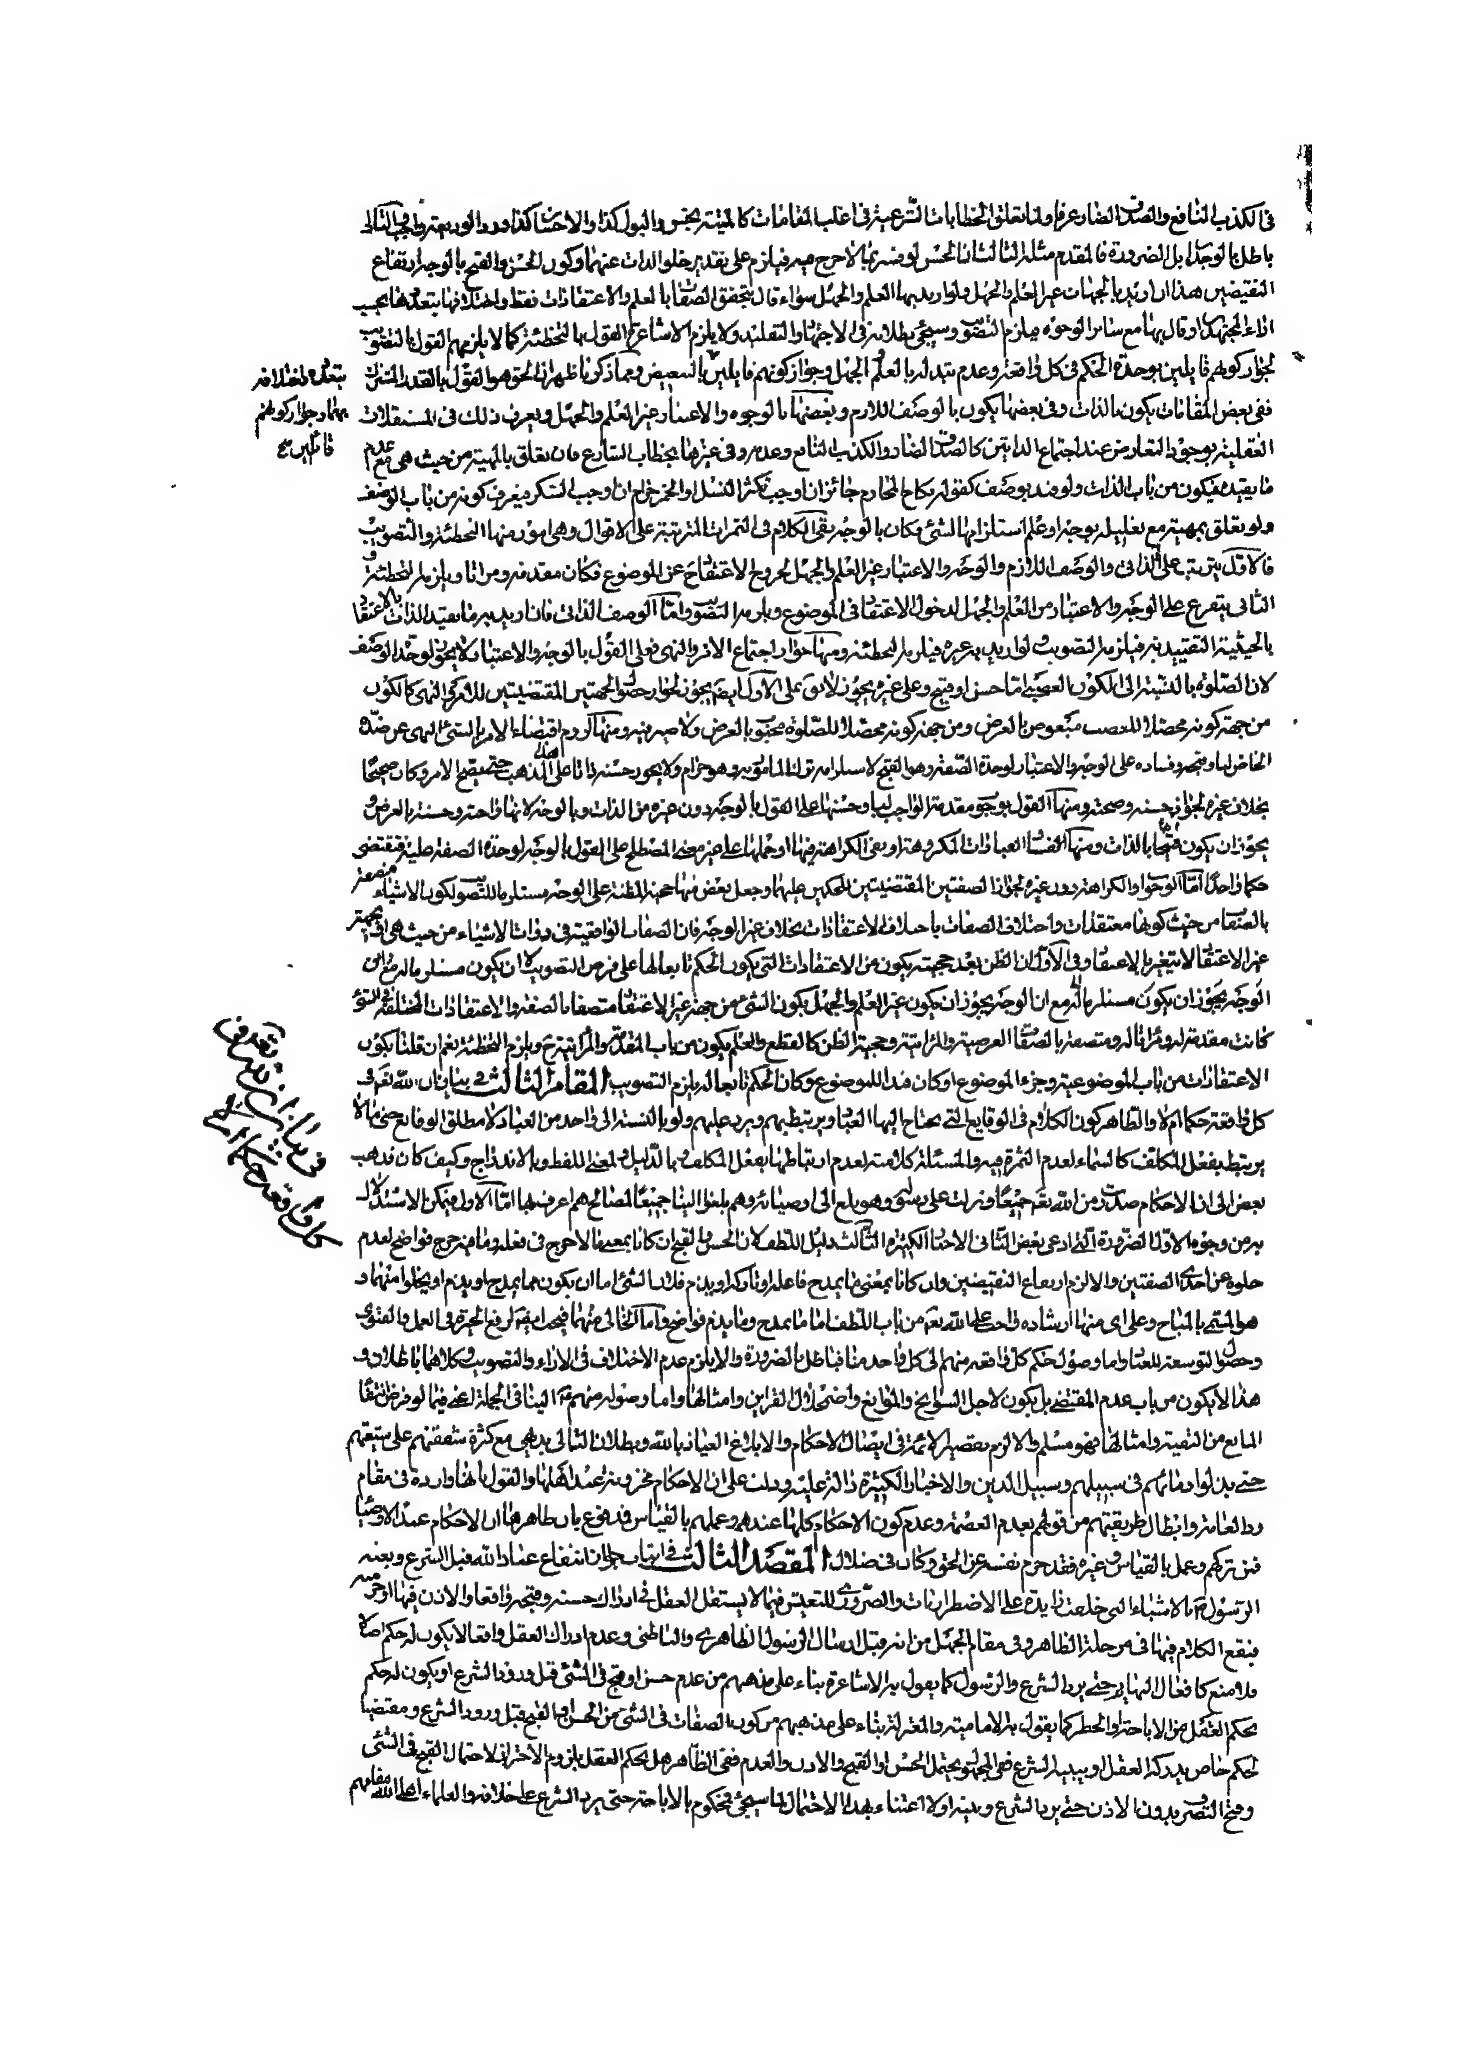 في الكذب النافع والصدق الضار عرفا ولما تعلق الخطابات الشرعية في اغلب المقامات كالميتة نجس والبول كذا والاحسان كذا ورد الوديعة واجب والتالي
باطل بالوجدان بل الضرورة فالمقدم مثله الثالث ان الحسن لو فسر بما لا حرج فيه فيلزم على تقدير خلو الذات عنهما وكون الحسن والقبح بالوجه ارتفاع
النقيضين هذا ان اريد بالجهات غير العلم والجهل ولو اريد بها العلم والجهل سواء قال بتحقق الصفات بالعلم والاعتقادات فقط واختلافها بتعددها بحسب
اراء المجتهدين او قال بها مع سائر الوجوه فيلزم التصويب وسيجئ بطلانه في الاجتهاد والتقليد ولا يلزم الاشاعرة القول بالتخطئة كما لا يلزمهم القول بالتصويب
لجواز كونهم قايلين بوحدة الحكم في كل واقعة وعدم تبدله بالعلم او الجهل وجواز كونهم قايلين بالتبعيض ومما ذكرنا ظهر ان الحق هو القول بالقدر المشترك
بتعدده واختلافه
بهما وجواز كونهم
قائلين صح
ففي بعض المقامات يكون بالذات وفي بعضها يكون بالوصف اللازم وبعضها بالوجوه والاعتبار غير العلم والجهل ويعرف ذلك في المستقلات
العقلية بوجود التعارض عند اجتماع الذاتين كالصدق الضار والكذب النافع وعدمه وفي غيرها بخطاب الشارع فان تعلق بالمهية من حيث هي مع عدم
ما يقيده فيكون من باب الذات ولو قيد بوصف كقوله نكاح المحارم جائز ان اوجب تكثر النسل او الخمر حرام ان اوجب السكر فيعرف كونه من باب الوصف
ولو تعلق بمهية مع تعليله بوجه او علم استلزامها لشئ فكان بالوجه بقي الكلام في الثمرات المترتبة على الاقوال وهي امور منها التخطئة والتصويب
فالاول يترتب على الذاتي والوصف اللازم والوجه والاعتبار غير العلم والجهل لخروج الاعتقاد ح عن الموضوع فكان مقدمة ومراتا ويلزمه التخطئة و
الثاني يتفرع على الوجه والاعتبار من العلم والجهل لدخول الاعتقاد في الموضوع ويلزمه التصويب واما الوصف الذاتي فان اريد به ما يقيد الذات بالاعتقاد
بالحيثية التقييدية فيلزمه التصويب لو اريد به غيره فيلزمه التخطئة ومنها جواز اجتماع الامر والنهي فعلى القول بالوجه والاعتبار لا يجوز لوحدة الوصف
لان الصلوة بالنسبة الى الكون الغصبي اما حسن او قبيح وعلى غيره يجوز لانه على الاول ايضا يجوز لجواز حصول الجهتين المقتضيتين للامر والنهي كالكون
من جهة كونه محصلا للغصب مبغوض بالعرض ومن جهة كونه محصلا للصلوة محبوب بالعرض ولا ضير فيه ومنها لزوم اقتضاء الامر بالشئ النهي عن ضده
الخاص لنا وقبحه وفساده على الوجه والاعتبار لوحدة الصفة وهو القبح لاستلزامه ترك المامور به وهو حرام ولا يجوز حسنه ذاتا على هذا المذهب حتى يصح الامر وكان صحيحا
بخلاف غيره لجواز حسنه وصحته ومنها القول بوجوب مقدمة الواجب لنا وحسنها على القول بالوجه دون غيره من الذات وبالوجه لانها واحدة وحسنه بالعرض و
يجوز ان يكون قبيحا بالذات ومنها الفساد العبادات المكروهة او نفي الكراهة فيها او حملها على غير معنى المصطلح على القول بالوجه لوحدة الصفة عليه فتقتضى
حكما واحدا اما الوجوب او الكراهة دون غيره لجواز الصفتين المقتضيتين للحكمين عليهما وجعل بعض منها حجية المظنة على الوجه مستلزما للتصويب لكون الاشياء متصفة
بالصفات من حيث كونها معتقدات واختلاف الصفات باختلاف الاعتقادات بخلاف غير الوجه فان الصفات الواقعية في ذوات الاشياء من حيث هي او بجهة
غير الاعتقاد لا يتغير بالاعتقاد وفي الاول ان الظن بعد حجيته يكون من الاعتقادات التي يكون الحكم تابعا لها على فرض التصويب لا ان يكون مستلزما له مع ان
الوجه يجوز ان يكون مستلزما له مع ان الوجه يجوز ان يكون غير العلم والجهل بكون الشئ من جهة غير الاعتقاد متصفا بالصفة والاعتقادات المختلفة في الشئ
كانت مقدمة له ومراتا له ومتصفة بالصفات العرضية والمراتية وحجية الظن كالقطع والعلم يكون من باب المقدمة والمراتية ح ويلزم التخطئة نعم ان قلنا بكون
الاعتقادات من باب الموضوعية وجزء الموضوع او كان قيدا للموضوع وكان الحكم تابعا له يلزم التصويب المقام الثالث في بيان ان الله تعالى في
في بيان ان لله تعالى في
كل واقعة حكما ام لا
كل واقعة حكما ام لا والظاهر كون الكلام في الوقايع التي يحتاج اليها العباد ويرتبط بهم ويرد عليهم ولو بالنسبة الى واحد من العباد لا مطلق الوقايع حتى ما لا
يرتبط بفعل المكلف كالسماء لعدم الثمرة فيه والمسئلة كلامية لعدم ارتباطها بفعل المكلف وبالدليل والمعنى اللفظ وبالاندراج وكيف كان فذهب
بعض الى ان الاحكام صدرت من الله تعالى جميعا ونزلت على رسوله وهو بلغ الى اوصيائه وهم بلغوا الينا جميعا لمصالح هم اعرف بها اما الاول فيمكن الاستدلال
به من وجوه الاول الضرورة التي ادعى بعض الثاني الاخبار الكثيرة الثالث دليل اللطف لان الحسن والقبح ان كانا بمعنى ما لا حرج في فعله وما فيه حرج فواضح لعدم
خلوه عن احدى الصفتين والا لزم ارتفاع النقيضين وان كانا بمعنى ما يمدح فاعله او تاركه او يذم فلان الشئ اما ان يكون مما يمدح او يذم او يخلو منهما و
هو المسمى بالمباح وعلى اى منها ارشاده واجب على الله تعالى من باب اللطف اما ما يمدح وما يذم فواضح واما الخالي منهما فيجب ايضا لرفع الحيرة في العمل والفتوى
وحصول التوسعة للعباد واما وصول حكم كل واقعة منهم الى كل واحد منا فباطل بالضرورة والا يلزم عدم الاختلاف في الاراء والتصويب وكلاهما باطلان و
هذا لا يكون من باب عدم المقتضى بل يكون لاجل السوانح والموانع واضمحلال القراين وامثالها واما وصوله منهم الينا في الجملة اعني فيما لو فرض انتفاء
المانع من التقية وامثالها فهو مسلم والا لزم تقصير الائمة في ايصال الاحكام والابلاغ العياذ بالله وبطلان التالي بديهي مع كثرة شفقتهم على شيعتهم
حتى بذلوا دمائهم في سبيلهم وسبيل الدين والاخبار الكثيرة دالة عليه ودلت على ان الاحكام مخزونة عند اهلها والقول بانها واردة في مقام
رد العامة وابطال طريقتهم من قولهم بعدم العصمة وعدم كون الاحكام كلها عندهم وعملهم بالقياس فمدفوع بان ظاهرها ان الاحكام عند الاوصياء
فمن تركهم وعمل بالقياس وغيره فقد حرم نفسه عن الحق وكان في ضلال المقصد الثالث في اثبات جواز انتفاع عباد الله قبل الشرع وبعثة
الرسول بالاشياء التي خلقت زايدة على الاضطراريات والضروري للتعيش فيما لا يستقل العقل في ادراك حسنه وقبحه واقعا والاذن فيها او حرمته
فيقع الكلام فيها في مرحلة الظاهر وفي مقام الجهل من انه قبل ارسال الرسول الظاهري والباطني وعدم ادراك العقل واقعا لا يكون له حكم اصلا
ولا منع كافعال البهايم حتى يرد الشرع والرسول كما يقول به الاشاعرة بناء على مذهبهم من عدم حسن او قبح في الشئ قبل ورود الشرع او يكون له حكم
بحكم العقل من الاباحة او الحظر كما يقول به الامامية والمعتزلة بناء على مذهبهم من كون الصفات في الشئ من الحسن او القبح قبل ورود الشرع ومقتضيا
لحكم خاص يدركه العقل او يبينه الشرع ففي المجهول يحتمل الحسن او القبح والاذن والعدم ففي الظاهر هل يحكم العقل بلزوم الاحتراز لاحتمال القبح في الشئ
وقبح التصرف بدون الاذن حتى يرد الشرع ويبينه اولا اعتناء بهذا الاحتمال لما سيجئ فمحكوم بالاباحة حتى يرد الشرع على خلافه والعلماء اعلى الله مقامهم